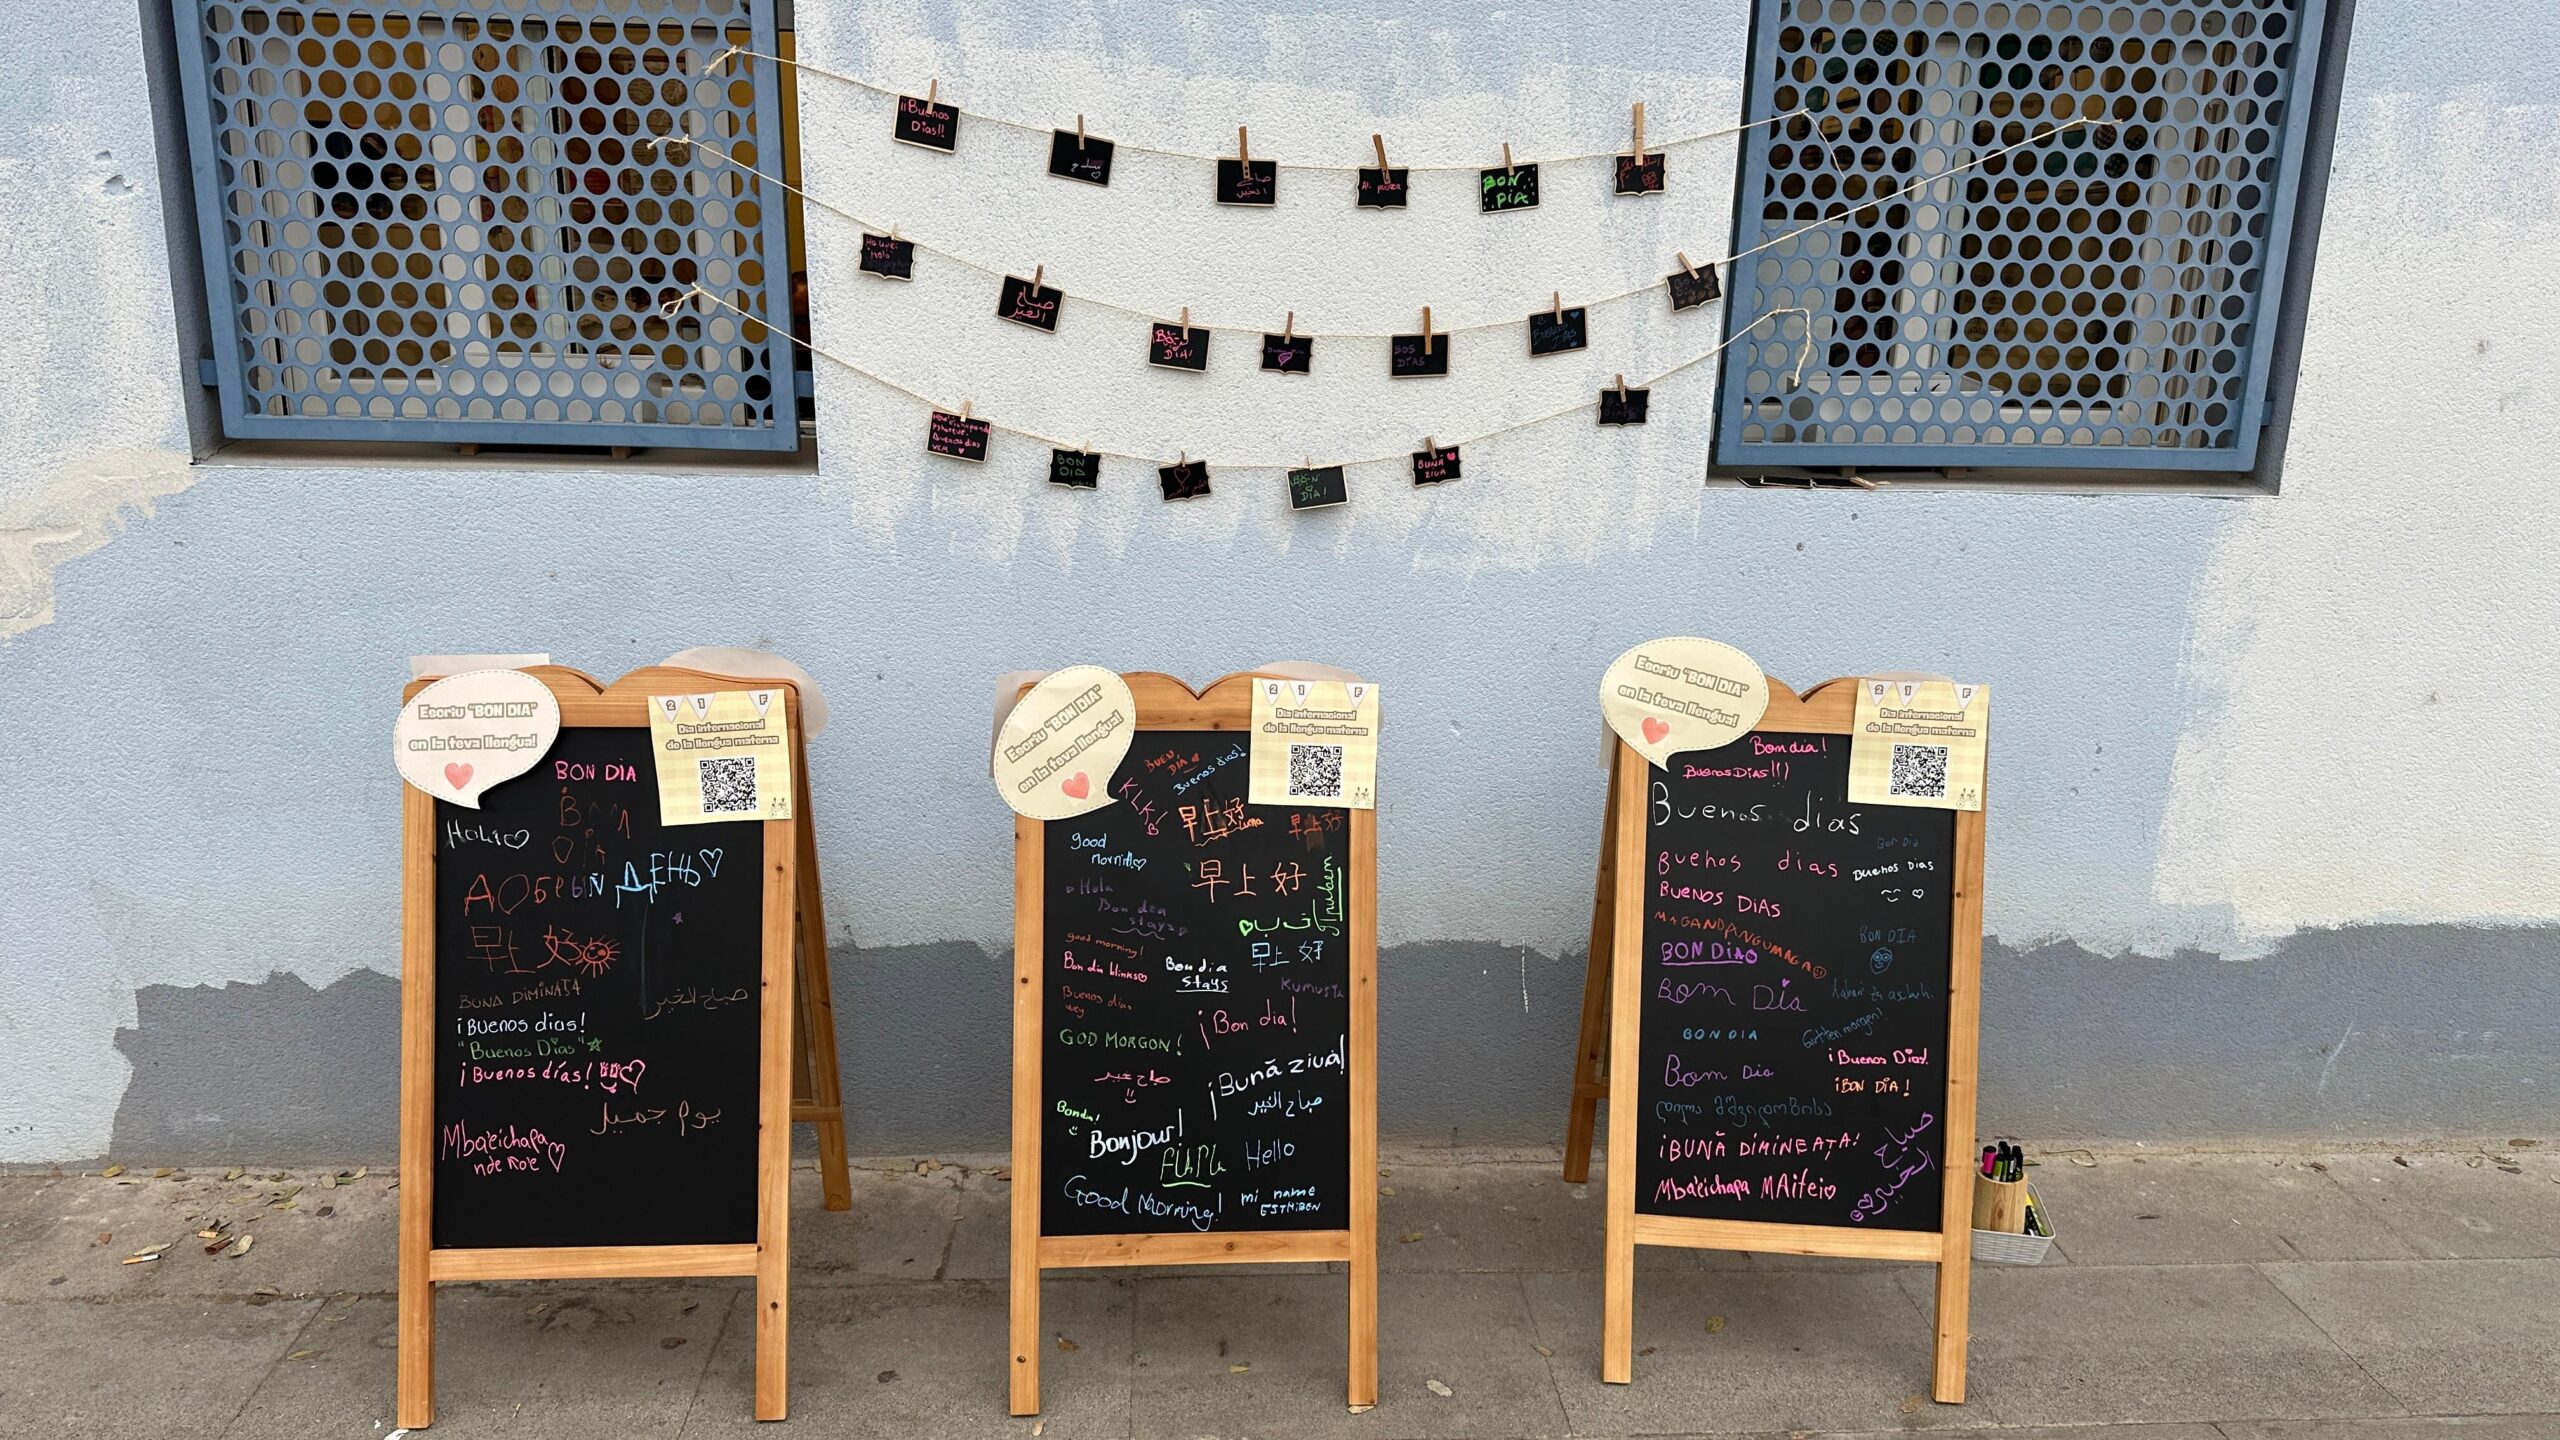 ¡¡Buenos
Días!!
صباح
الخير
BON
DIA
صباح
الخير
DIA!
BOS
DIAS
BUENOS
DIAS
Buenos dias
BON
DIA
BON
DIA!
BUNĂ
ZIUA
Escriu "BON DIA"
en la teva llengua!
2 1 F
Dia internacional
de la llengua materna
BON DIA
BON
DIA
Holi
ДОБРЫЙ ДЕНЬ
早上好
BUNA DIMINAȚA
صباح الخير
¡Buenos dias!
"Buenos Dias"
¡Buenos días!
يوم جميل
Mba'eichapa
nde ko'e
Escriu "BON DIA"
en la teva llengua!
2 1 F
Dia internacional
de la llengua materna
BUEN
DÍA
Buenos dias!
KLK
早上好
早上好
good
morning
早上好
Привет
Hola
Bon dia
stays
早上好
good morning!
Bon dia blinks
Bon dia
stays
KUMUSTA
Buenos dias
wey
¡Bon dia!
GOD MORGON!
صباح خير
¡Bună ziua!
صباح الخير
Bondia!
Bonjour!
Hello
Good Morning!
mi name
ESTHIBEN
Escriu "BON DIA"
en la teva llengua!
2 1 F
Dia internacional
de la llengua materna
Bon dia!
Buenos Dias!!!
Buenos dias
Bon Dia
Buenos dias
Buenos Dias
BUENOS DIAS
MAGANDANGUMAGA
BON DIA
BON DIA
Bom Dia
Guten morgen!
BON DIA
¡Buenos Dias!
Bom Dia
¡BON DIA!
დილა მშვიდობისა
¡BUNĂ DIMINEAȚA!
صباح
الخير
Mba'eichapa MAitei